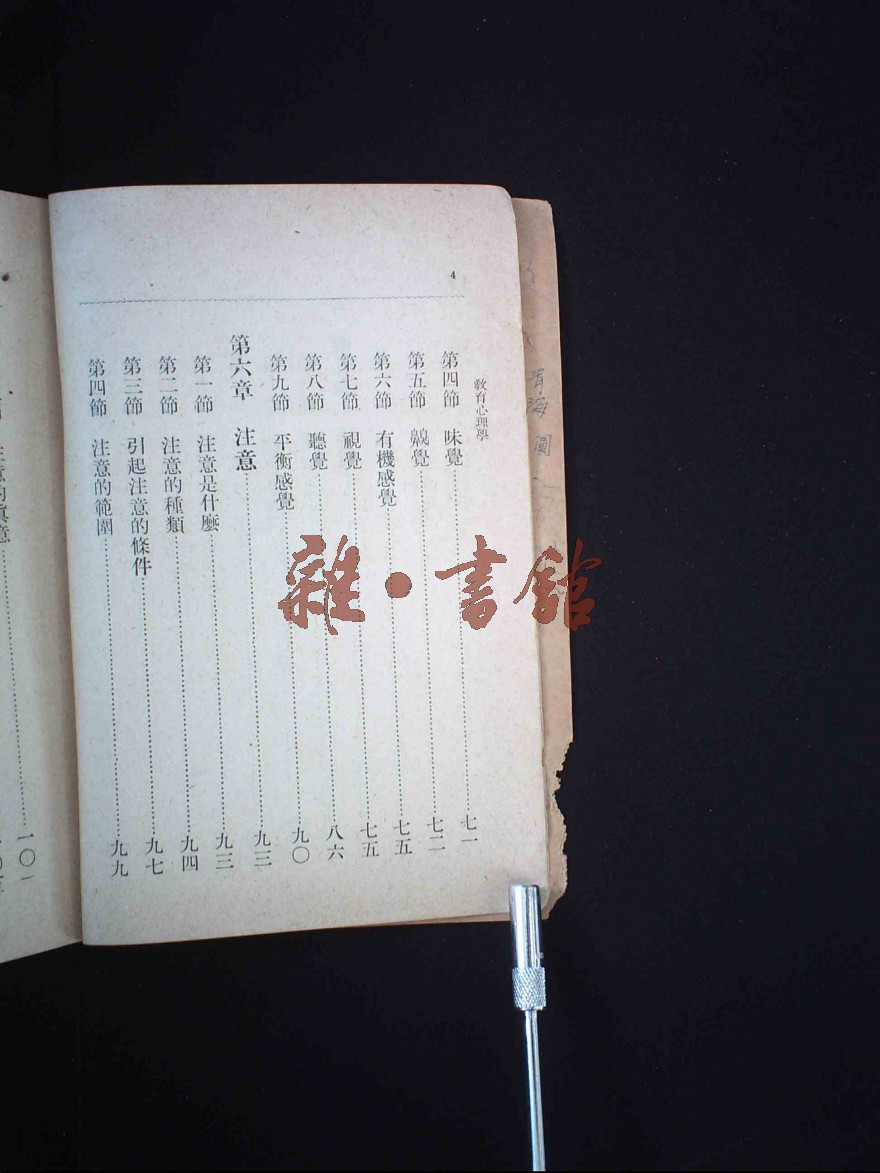 4
教育心理學
第四節 味覺 七一
第五節 齅覺 七二
第六節 有機感覺 七五
第七節 視覺 七五
第八節 聽覺 八六
第九節 平衡感覺 九〇
第六章 注意 九三
第一節 注意是什麼 九三
第二節 注意的種類 九四
第三節 引起注意的條件 九七
第四節 注意的範圍 九九
一〇一
雜·書館